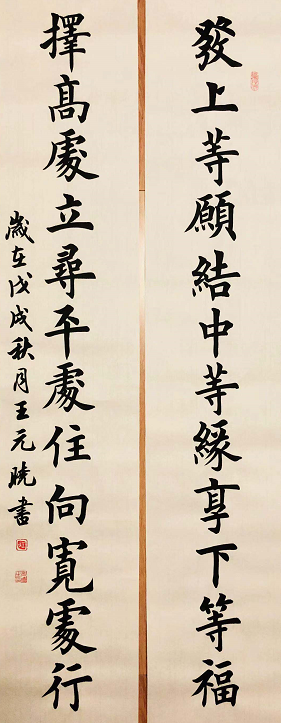 發上等願結中等緣享下等福
擇高處立尋平處住向寬處行
歲在戊戌秋月王元曉書